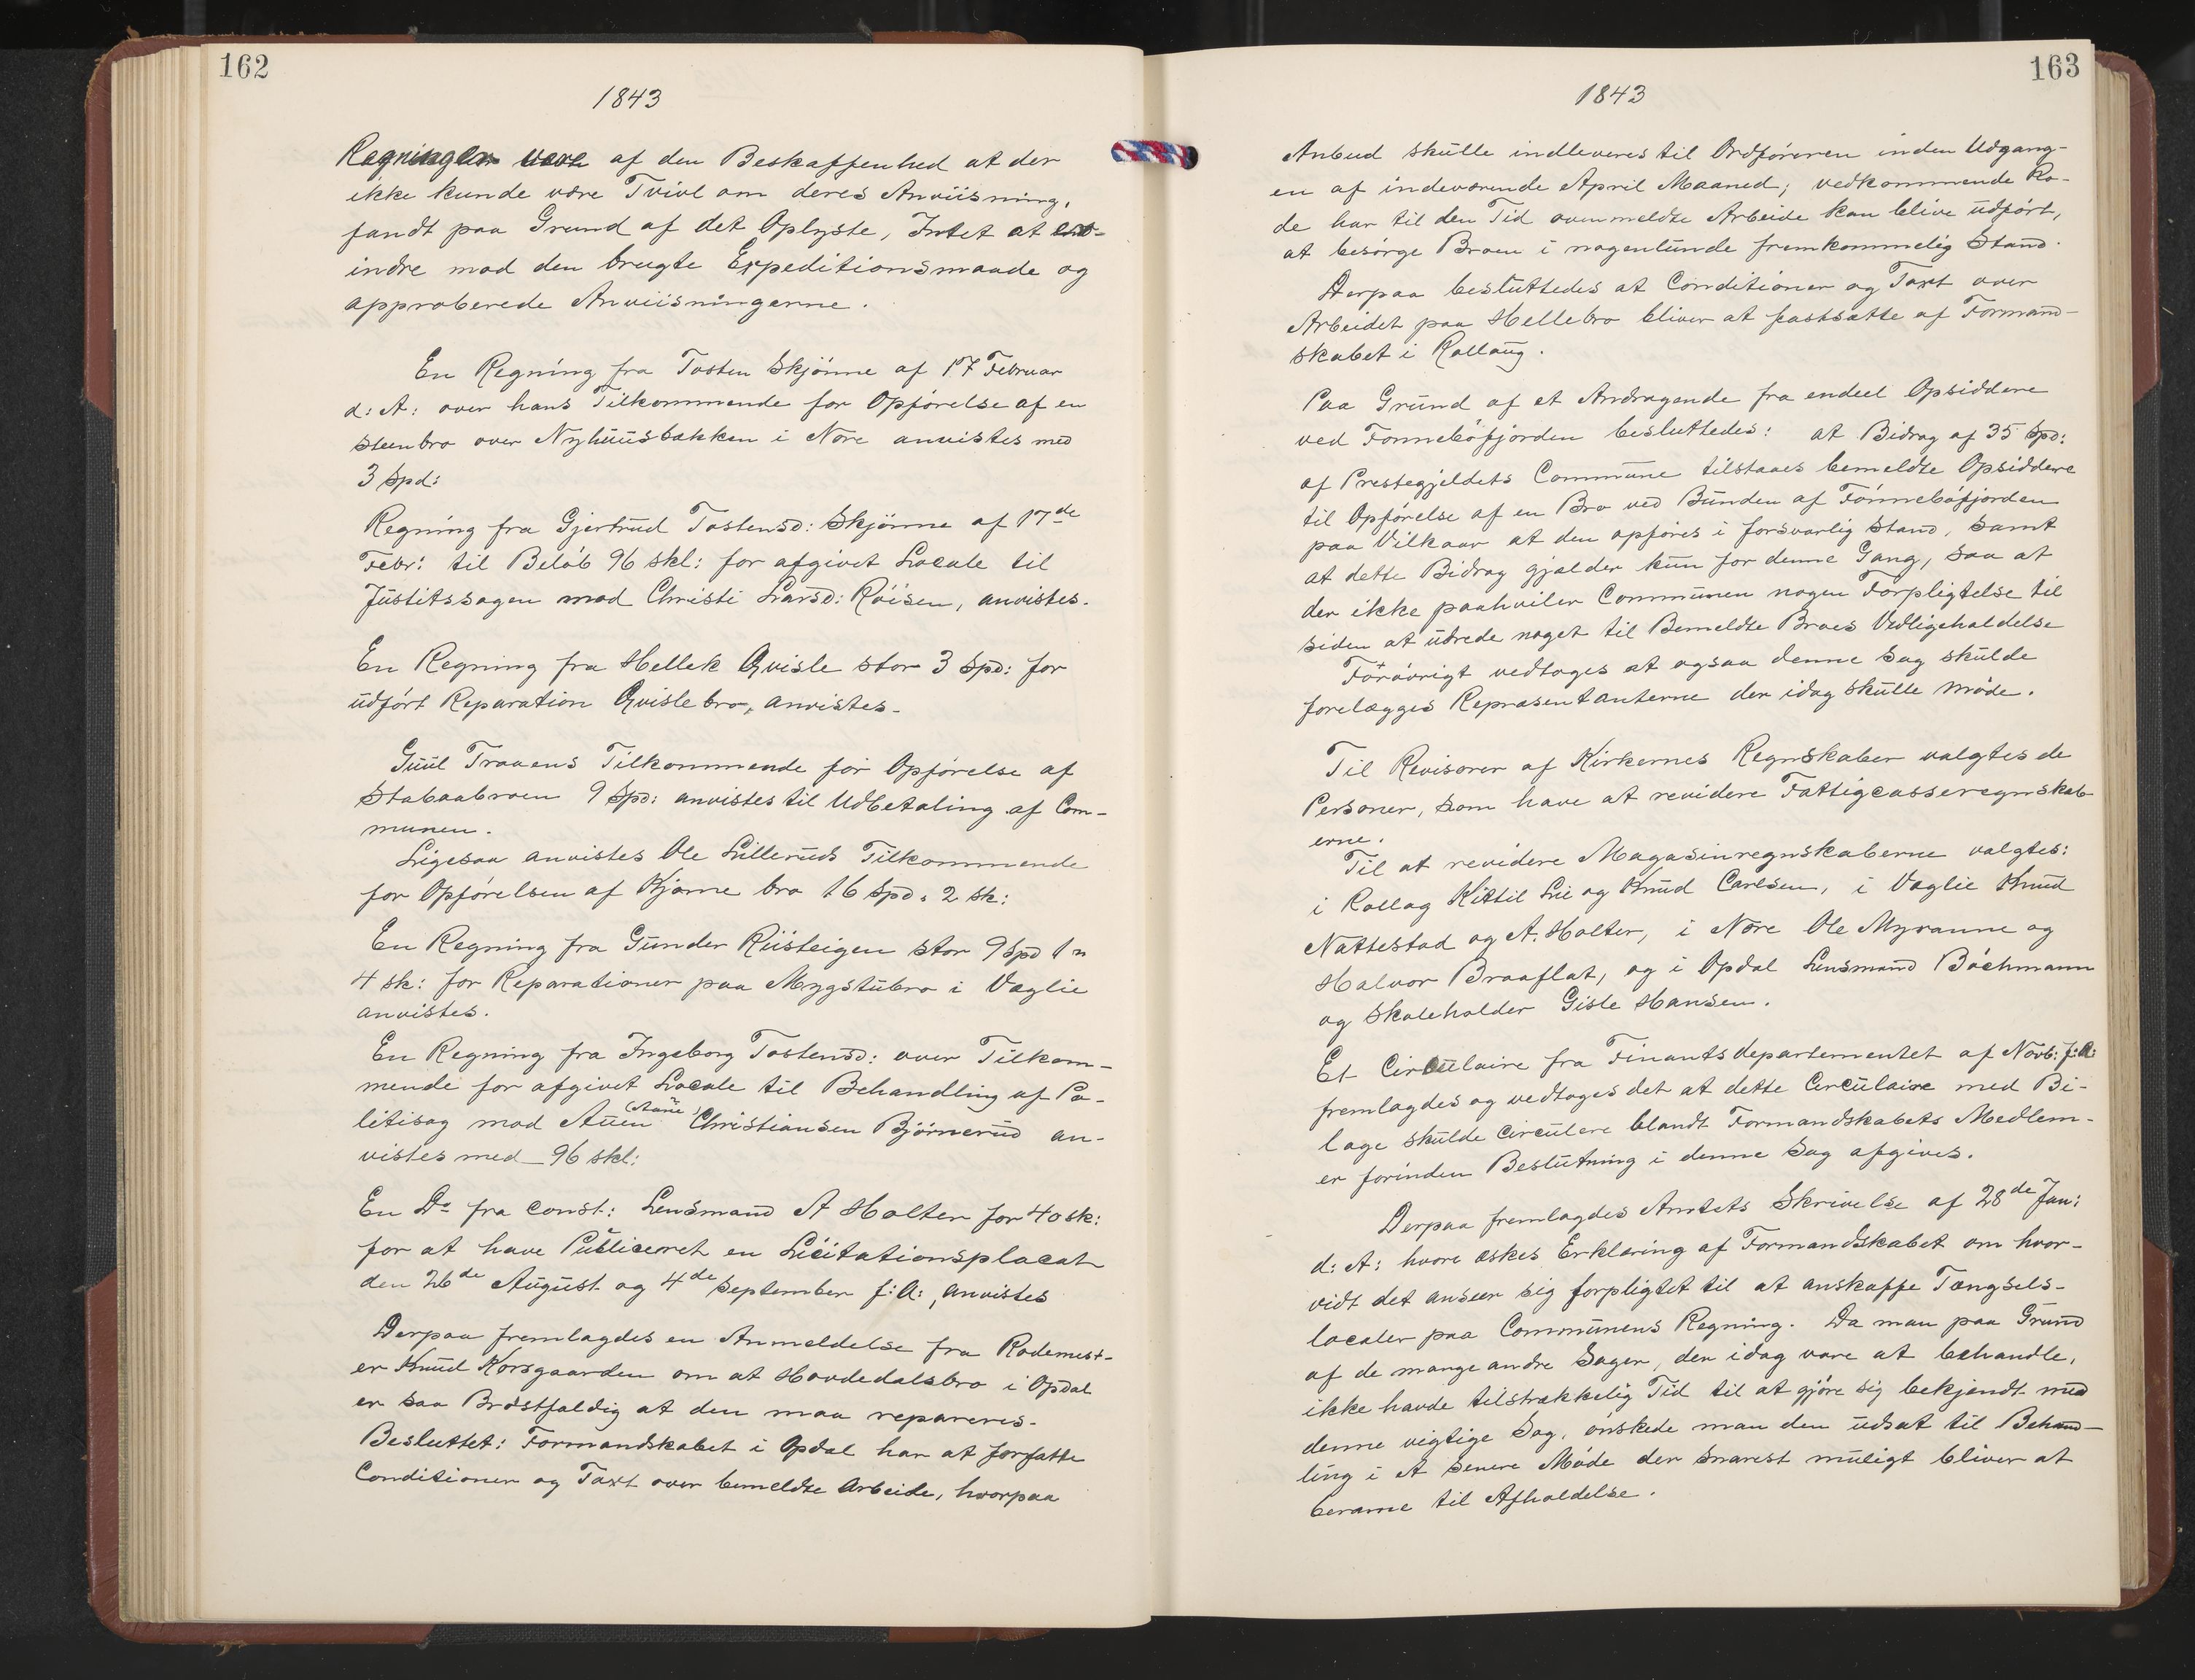 162
1843
Regningen vare af den Beskaffenhed at der
ikke kunde være Tvivl om deres Anviisning,
fandt paa Grund af det Oplyste, Intet at er-
indre mod den brugte Expeditionsmaade og
approberede Anviisningerne.
En Regning fra Tosten Skjönne af 17 Februar
d: A: over hans Tilkommende for Opförelse af en
Steenbro over Nyhuusbækken i Nore anvistes med
3 Spd:
Regning fra Gjertrud Tostensd: Skjönne af 17de
Febr: til Belöb 96 skl: for afgivet Locale til
Justitssagen mod Christi Larsd: Röisen, anvistes.
En Regning fra Hellek Qvisle stor 3 Spd: for
udfört Reparation Qvislebro, anvistes.
Guul Traaens Tilkommende for Opförelse af
Stabaabroen 9 Spd: anvistes til Udbetaling af Com-
munen.
Ligesaa anvistes Ole Lilleruds Tilkommende
for Opförelsen af Kjönne bro 16 Spd. 2 sk:
En Regning fra Gunder Ruusteigen stor 9 Spd 1 n
4 sk: for Reparationer paa Mygstubro i Væglie
anvistes.
En Regning fra Ingeborg Tostensd: over Tilkom-
mende for afgivet Locale til Behandling af Po-
litisag mod Auen (Aane) Christiansen Björnerud an-
vistes med 96 skl:
En Do fra const: Lensmand A Holter for 40 sk:
for at have Publiceret en Licitationsplacat
den 26de August og 4de September f: A:, anvistes
Derpaa fremlagdes en Anmeldelse fra Rodemest-
er Knud Korsgaarden om at Hovdedalsbro i Opdal
er saa Bröstfaldig at den maa repareres.
Besluttet: Formandskabet i Opdal har at forfatte
Conditioner og Taxt over bemeldte Arbeide, hvorpaa
163
1843
Anbud skulle indleveres til Ordföreren inden Udgang-
en af indeværende April Maaned; vedkommende Ro-
de har til den Tid ovenmeldte Arbeide kan blive udfört,
at besörge Broen i nogenlunde fremkommelig Stand.
Derpaa besluttedes at Conditioner og Taxt over
Arbeidet paa Hellebro bliver at fastsætte af Formand-
skabet i Rollaug.
Paa Grund af et Andragende fra endeel Opsiddere
ved Tonneböfjorden besluttedes: at Bidrag af 35 Spd:
af Prestegjeldets Commune tilstaaes bemeldte Opsiddere
til Opförelse af en Bro ved Bunden af Tönneböfjorden
paa Vilkaar at den opföres i forsvarlig Stand, samt
at dette Bidrag gjælder kun for denne Gang, saa at
der ikke paahviler Communen nogen Forpligtelse til
siden at udrede noget til Bemeldte Broes Vedligeholdelse
Forövrigt vedtoges at ogsaa denne Sag skulde
forelægges Repræsentanterne der idag skulle möde.
Til Revisorer af Kirkernes Regnskaber valgtes de
Personer, som have at revidere Fattigcasseregnskab-
erne.
Til at revidere Magasinregnskaberne valgtes:
i Rollag Kittil Lie og Knud Carlsen, i Væglie Knud
Nattestad og A. Holter, i Nore Ole Myranne og
Halvor Braaflat, og i Opdal Lensmand Böchmann
og Skoleholder Gisle Hansen.
Et Circulaire fra Finantsdepartementet af Novb: f: A:
fremlagdes og vedtoges det at dette Circulaire med Bi-
lage skulde circulere blandt Formandskabets Medlem-
er forinden Beslutning i denne Sag afgives.
Derpaa fremlagdes Amtets Skrivelse af 28de Jan:
d: A: hvori æskes Erklæring af Formandskabet om hvor-
vidt det anseer sig forpligtet til at anskaffe Fængsels-
localer paa Communens Regning. Da man paa Grund
af de mange andre Sager, der idag vare at behandle,
ikke havde tilstrækkelig Tid til at gjöre sig bekjendt med
denne vigtige Sag, önskede man den udsat til Behand-
ling i et senere Möde der snarest muligt bliver at
berame til Afholdelse.